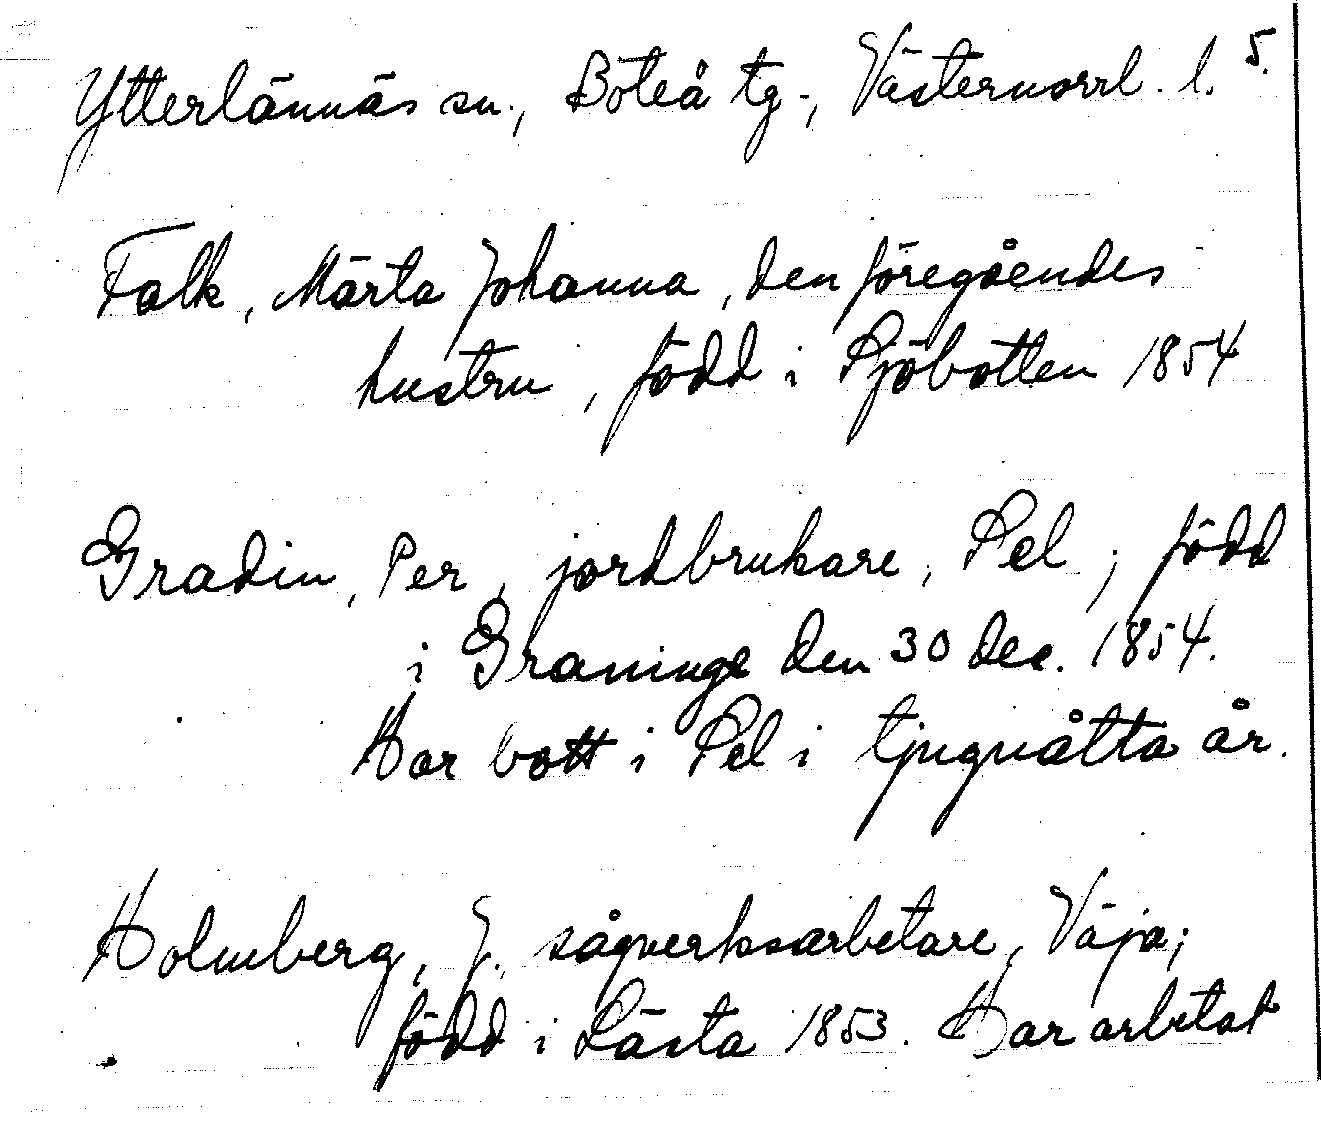 Ytterlännäs sn., Boteå tg., Västernorrl. l. 5.
Falk, Märta Johanna, den föregåendes
hustru, född i Sjöbotten 1854
Gradin, Per, jordbrukare, Pel; född
i Graninge den 30 dec. 1854.
Har bott i Pel i tjuguåtta år.
Holmberg, J. sågverksarbetare, Väja;
född i Lästa 1853. Har arbetat